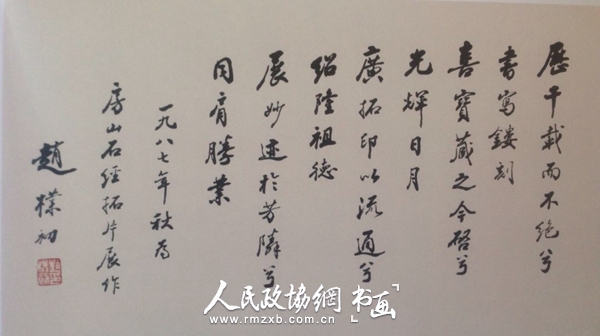 歷千載而不絕兮
書寫鏤刻
喜寶藏之今啓兮
光輝日月
廣拓印以流通兮
紹隆祖德
展妙迹於芳隣兮
同肩勝業
一九八七年秋為
房山石經拓片展作
趙樸初
人民政協網 书画
www.rmzxb.com.cn